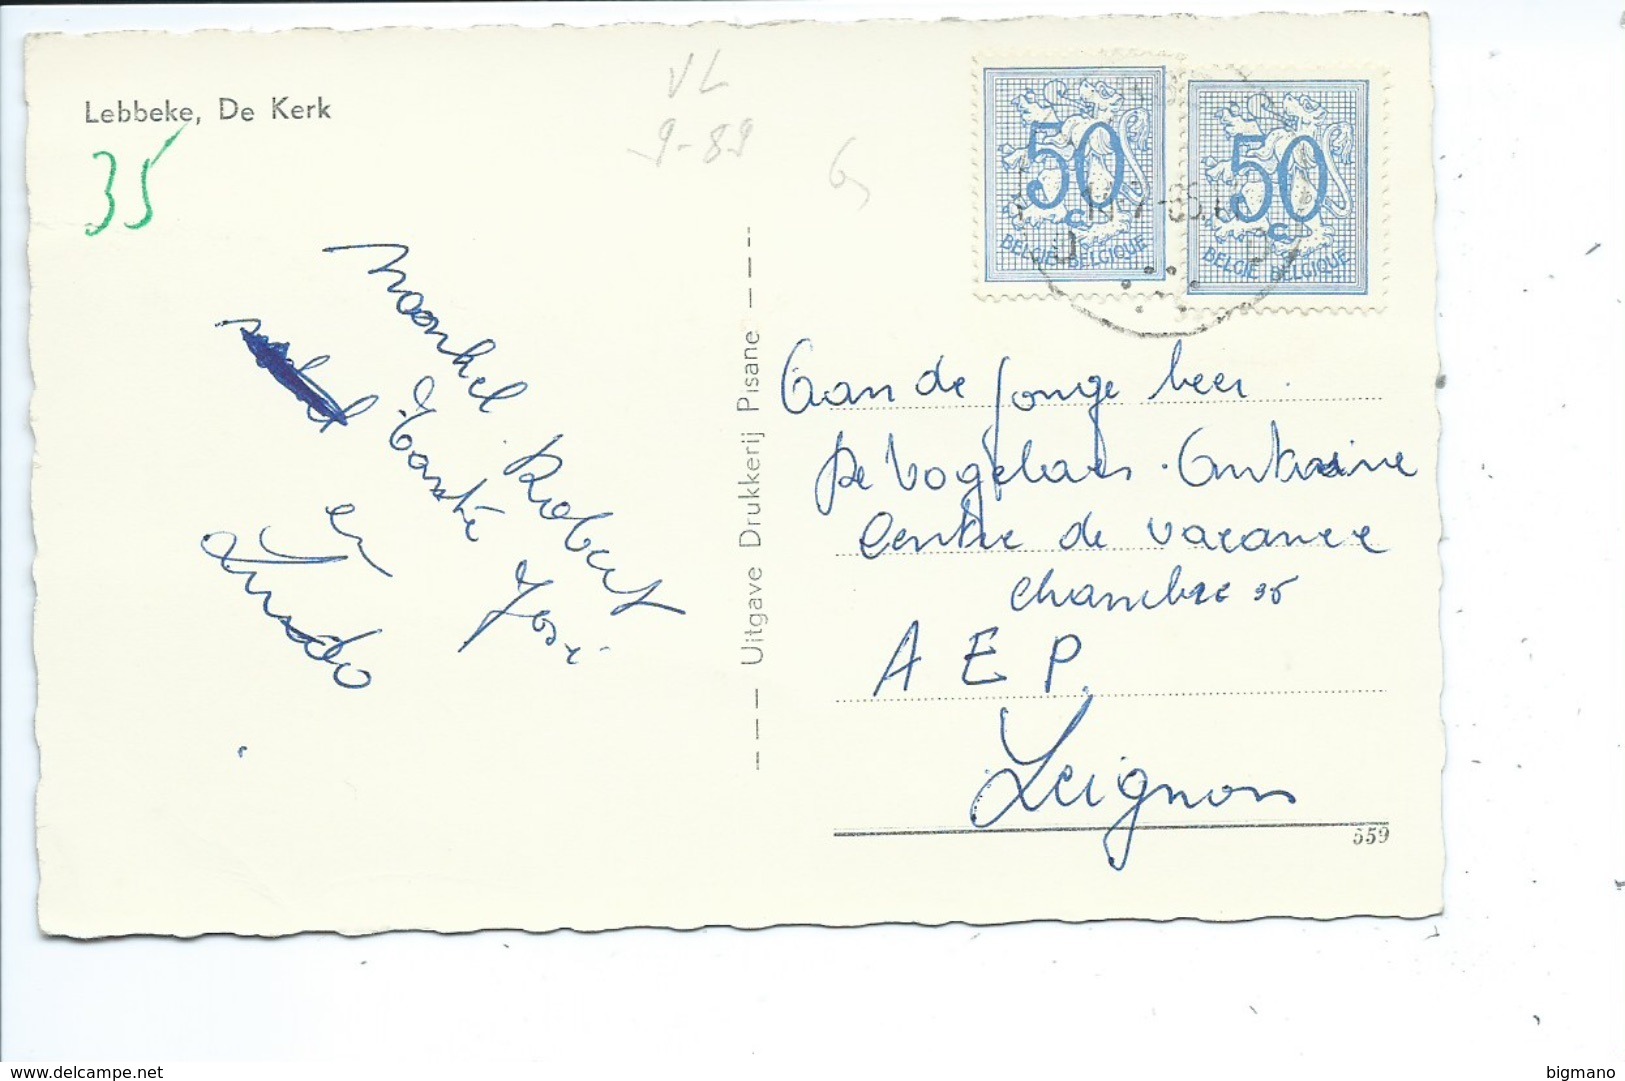 Lebbeke, De Kerk
35
VL
9-89
50
c
BELGIË BELGIQUE
50
c
BELGIË BELGIQUE
Nonkel Robert
Tante José
en
Uitgave Drukkerij Pisane
Aan de jonge heer.
De Vogelaers Antoine
Centre de vacance
chambre 35
A E P.
Leignon
559
www.delcampe.net
bigmano